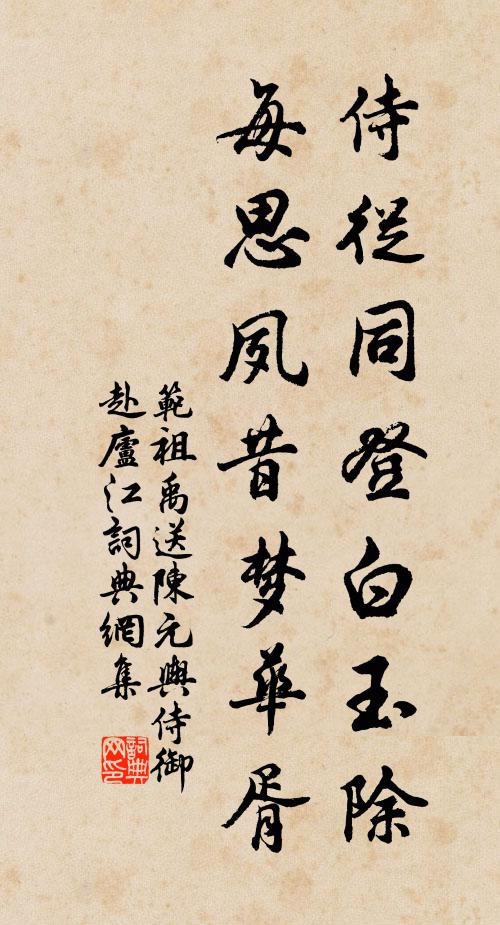 侍從同登白玉除
每思夙昔梦華胥
範祖禹送陳元輿侍御
赴廬江詞典網集
詞典网印